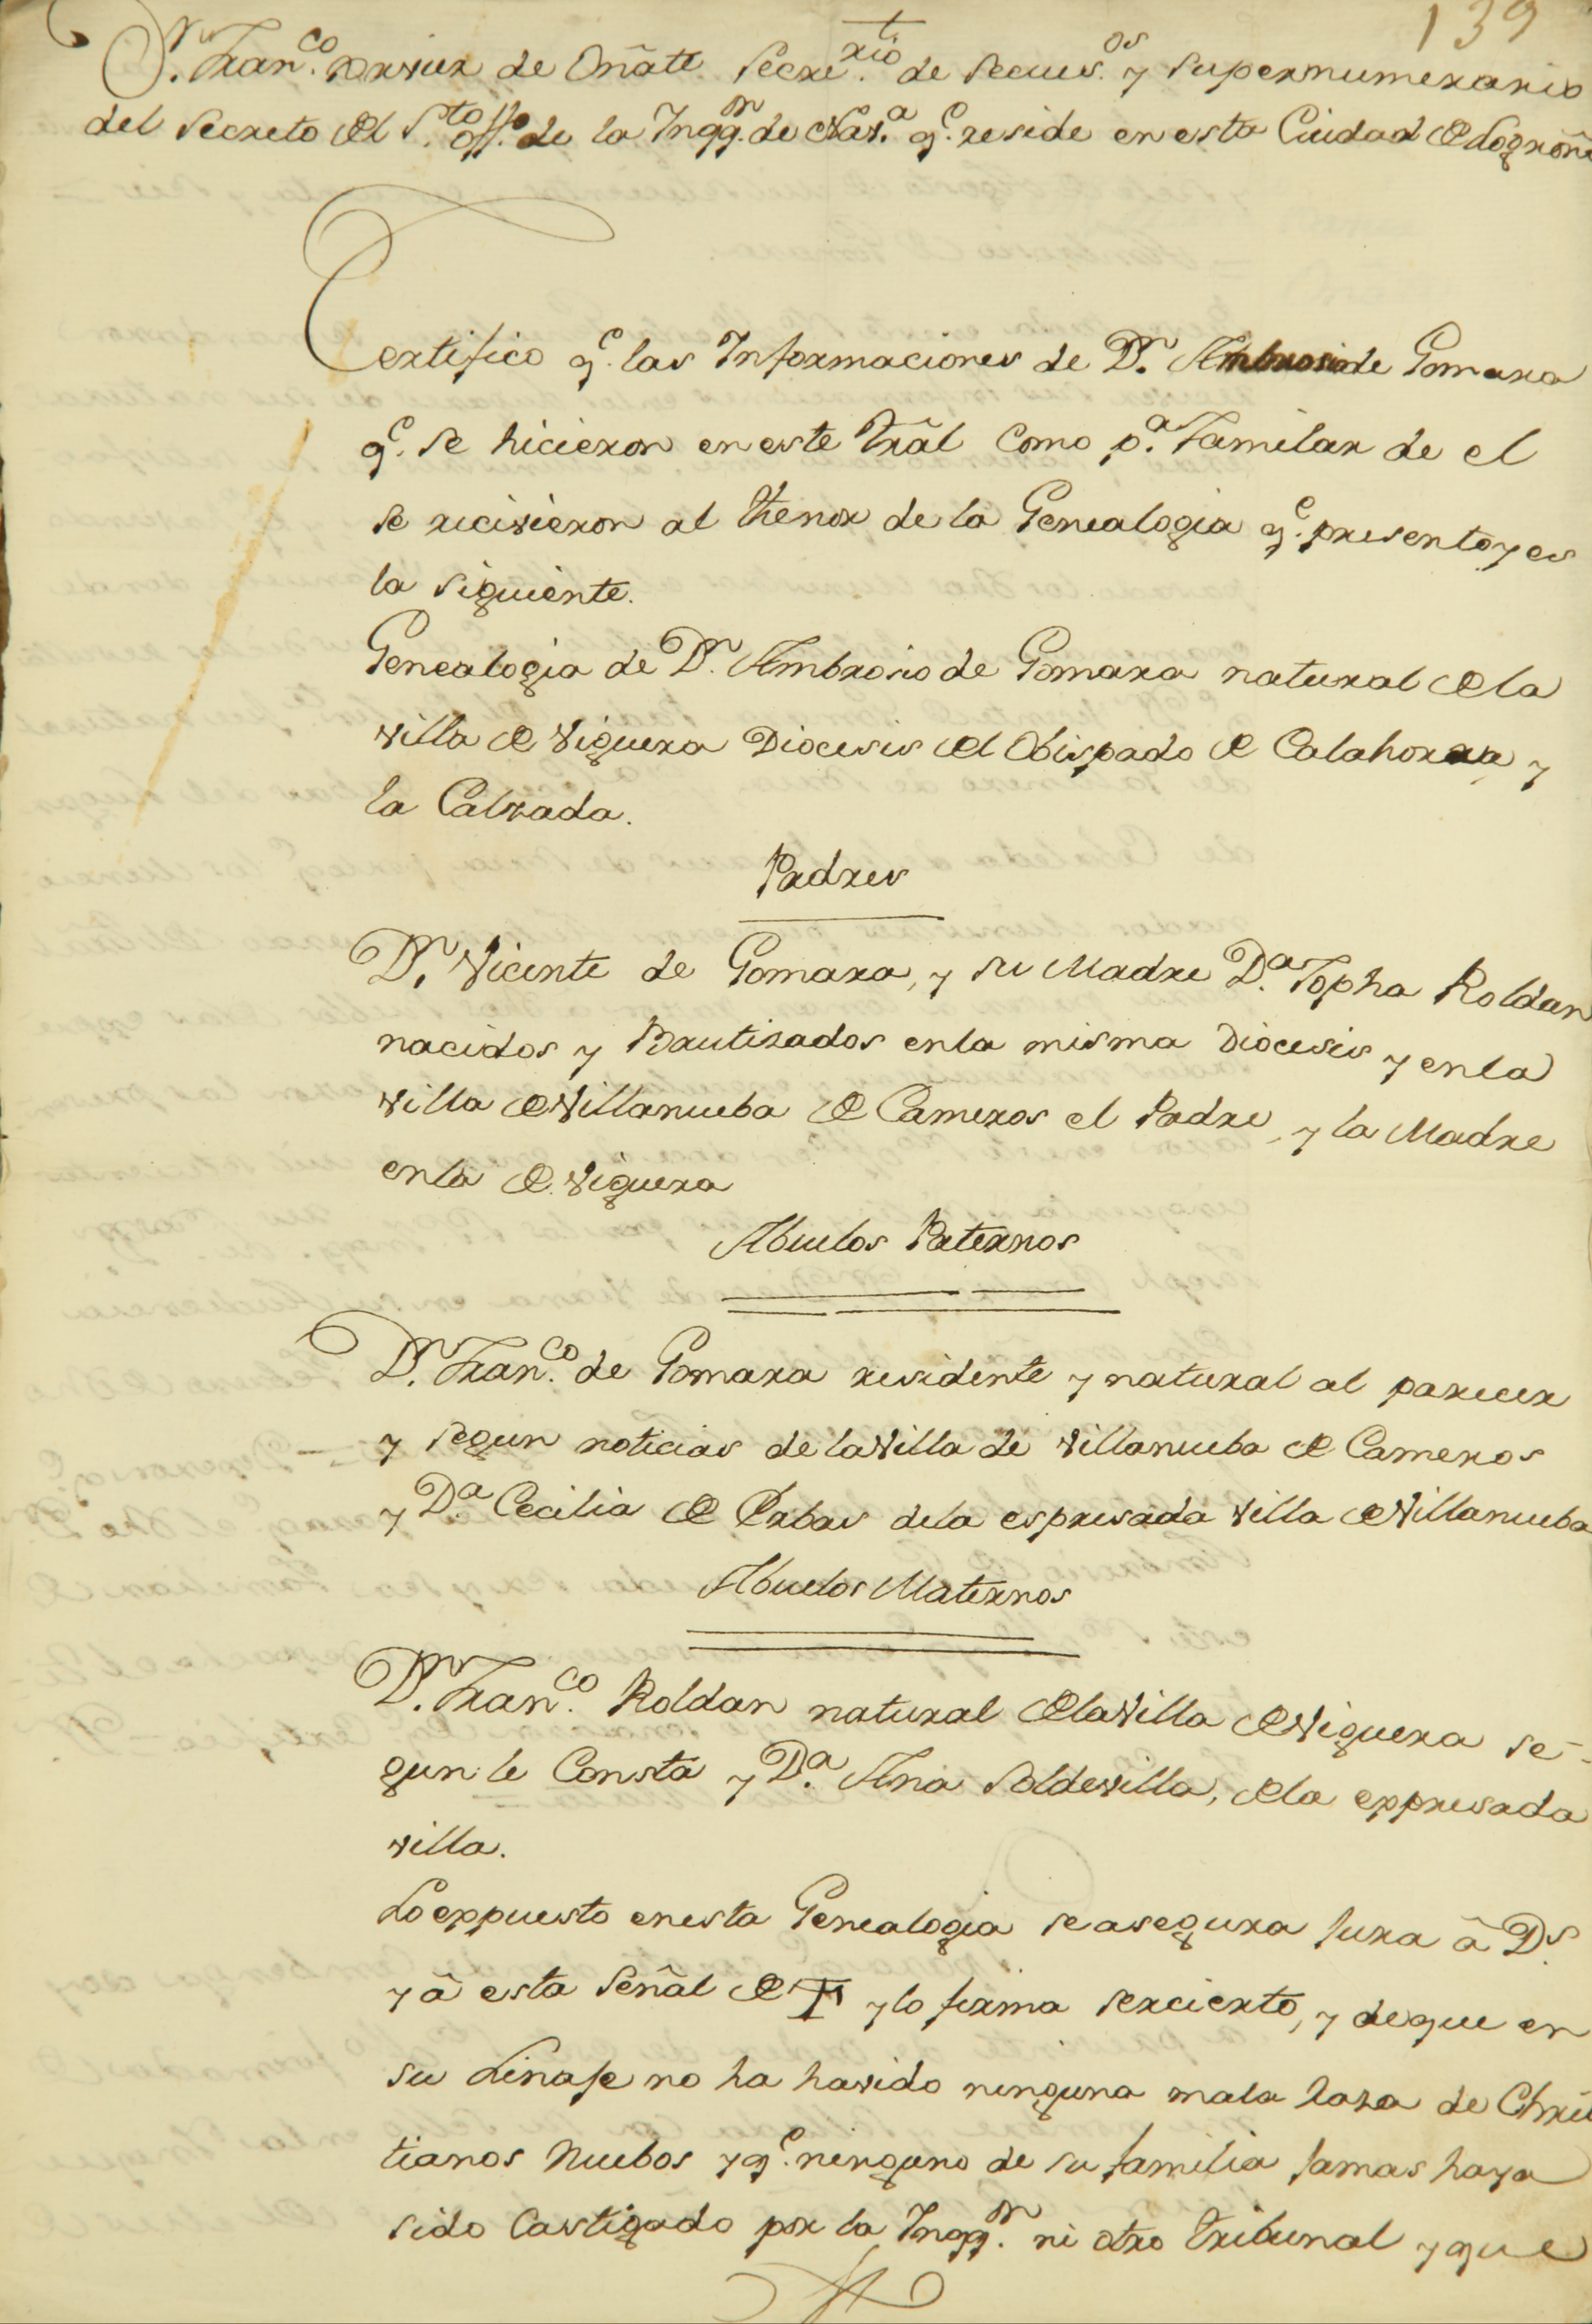 139
Dn. Franco. Xavier de Oñate Secretrio. de Secuesos. y Supernumerario
del Secreto del Sto. Offo. de la Inqqn. de Nava. qe. reside en esta Ciudad de Logroño
Certifico qe. las Informaciones de Dn. Ambrosio de Gomara
qe. se hicieron en este Trãl como pa. Familar de el
se recivieron al thenor de la Genealogia qe. presento y es
la siguiente.
Genealogia de Dn. Ambrosio de Gomara natural de la
villa de Viguera Diocesis del Obispado de Calahorra, y
la Calzada.
Padres
Dn. Vicente de Gomara, y su Madre Da. Jopha Roldan
nacidos y Bautizados en la misma Diocesis y en la
villa de Villanueba de Cameros el Padre, y la Madre
en la de Viguera
Abuelos Paternos
Dn. Franco. de Gomara residente y natural al parecer
y segun noticias de la Villa de Villanueba de Cameros
y Da. Cecilia de Orbas de la espresada villa de Villanueba
Abuelos Maternos
Dn. Franco. Roldan natural de la Villa de Viguera se-
gun le Consta y Da. Ana Soldevilla, de la expresada
villa.
Lo expuesto en esta Genealogia se asegura jura â Ds.
y â esta Señal de † y lo firma ser cierto, y de que en
su Linaje no ha havido ninguna mala Raza de Chris
tianos Nuebos y qe. ninguno de su familia jamas haya
sido Castigado por la Inqqn. ni otro tribunal y que